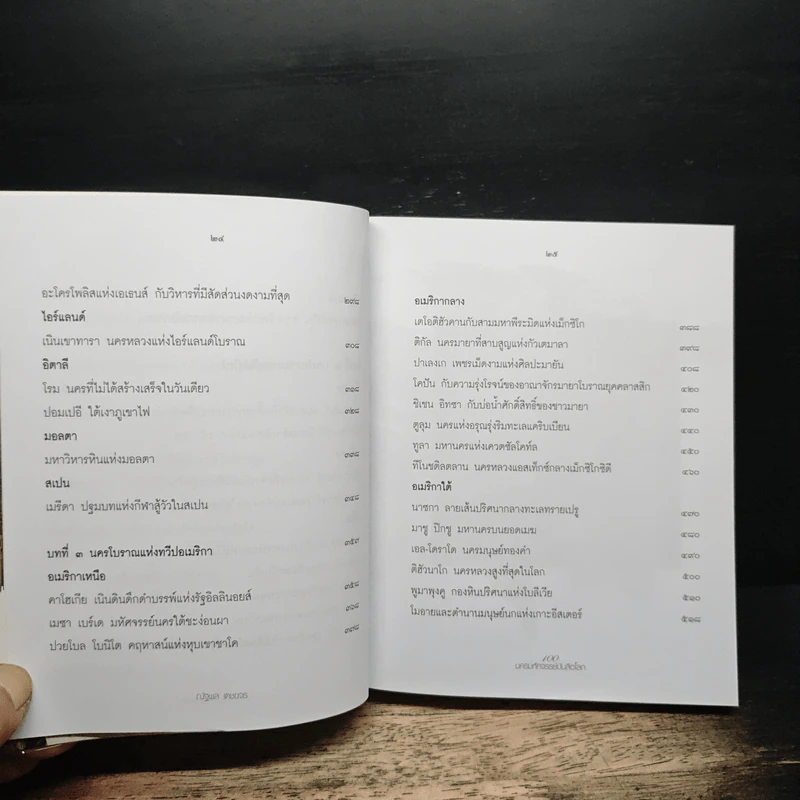 ๒๔
อะโครโพลิสแห่งเอเธนส์ กับวิหารที่มีสัดส่วนงดงามที่สุด ๒๙๘
ไอร์แลนด์
เนินเขาทารา นครหลวงแห่งไอร์แลนด์โบราณ ๓๐๘
อิตาลี
โรม นครที่ไม่ได้สร้างเสร็จในวันเดียว ๓๑๘
ปอมเปอี ใต้เงาภูเขาไฟ ๓๒๘
มอลตา
มหาวิหารหินแห่งมอลตา ๓๓๘
สเปน
เมรีดา ปฐมบทแห่งกีฬาสู้วัวในสเปน ๓๔๘
บทที่ ๓ นครโบราณแห่งทวีปอเมริกา ๓๕๙
อเมริกาเหนือ
คาโฮเกีย เนินดินดึกดำบรรพ์แห่งรัฐอิลลินอยส์ ๓๕๘
เมซา เบร์เด มหัศจรรย์นครใต้ชะง่อนผา ๓๖๘
ปวยโบล โบนิโต คฤหาสน์แห่งหุบเขาชาโค ๓๗๘
ณัฐพล เดชขจร
๒๕
อเมริกากลาง
เตโอติฮัวคานกับสามมหาพีระมิดแห่งเม็กซิโก ๓๘๘
ติกัล นครมายาที่สาบสูญแห่งกัวเตมาลา ๓๙๘
ปาเลงเก เพชรเม็ดงามแห่งศิลปะมายัน ๔๐๘
โคปัน กับความรุ่งโรจน์ของอาณาจักรมายาโบราณยุคคลาสสิก ๔๒๐
ชิเชน อิทซา กับบ่อน้ำศักดิ์สิทธิ์ของชาวมายา ๔๓๐
ตูลุม นครแห่งอรุณรุ่งริมทะเลแคริบเบียน ๔๔๐
ทูลา มหานครแห่งเควตซัลโคท์ล ๔๕๐
ทีโนชติตลาน นครหลวงแอสเท็กซ์กลางเม็กซิโกซิตี ๔๖๐
อเมริกาใต้
นาซกา ลายเส้นปริศนากลางทะเลทรายเปรู ๔๗๐
มาชู ปิกชู มหานครบนยอดเมฆ ๔๘๐
เอล-โดราโด นครมนุษย์ทองคำ ๔๙๐
ติฮัวนาโก นครหลวงสูงที่สุดในโลก ๕๐๐
พูมาพุงคู กองหินปริศนาแห่งโบลีเวีย ๕๑๐
โมอายและตำนานมนุษย์นกแห่งเกาะอีสเตอร์ ๕๑๘
๑๐๐
นครมหัศจรรย์บันลือโลก